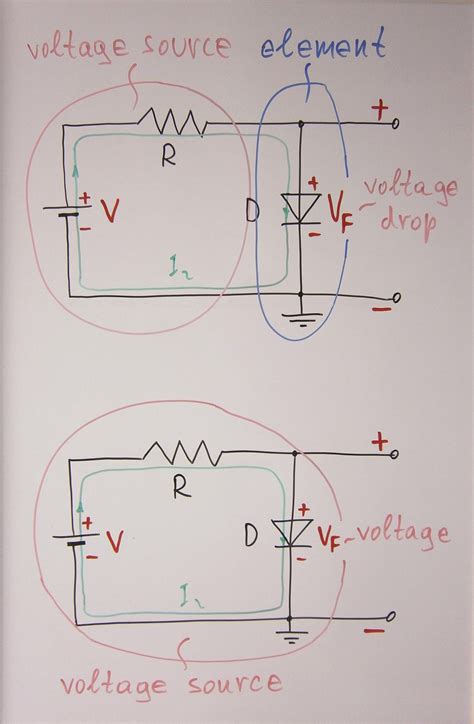 voltage source element
+
R
+ V - D + VF - voltage drop
I2
-
+
R
+ V - D + VF - voltage
I2
-
voltage source